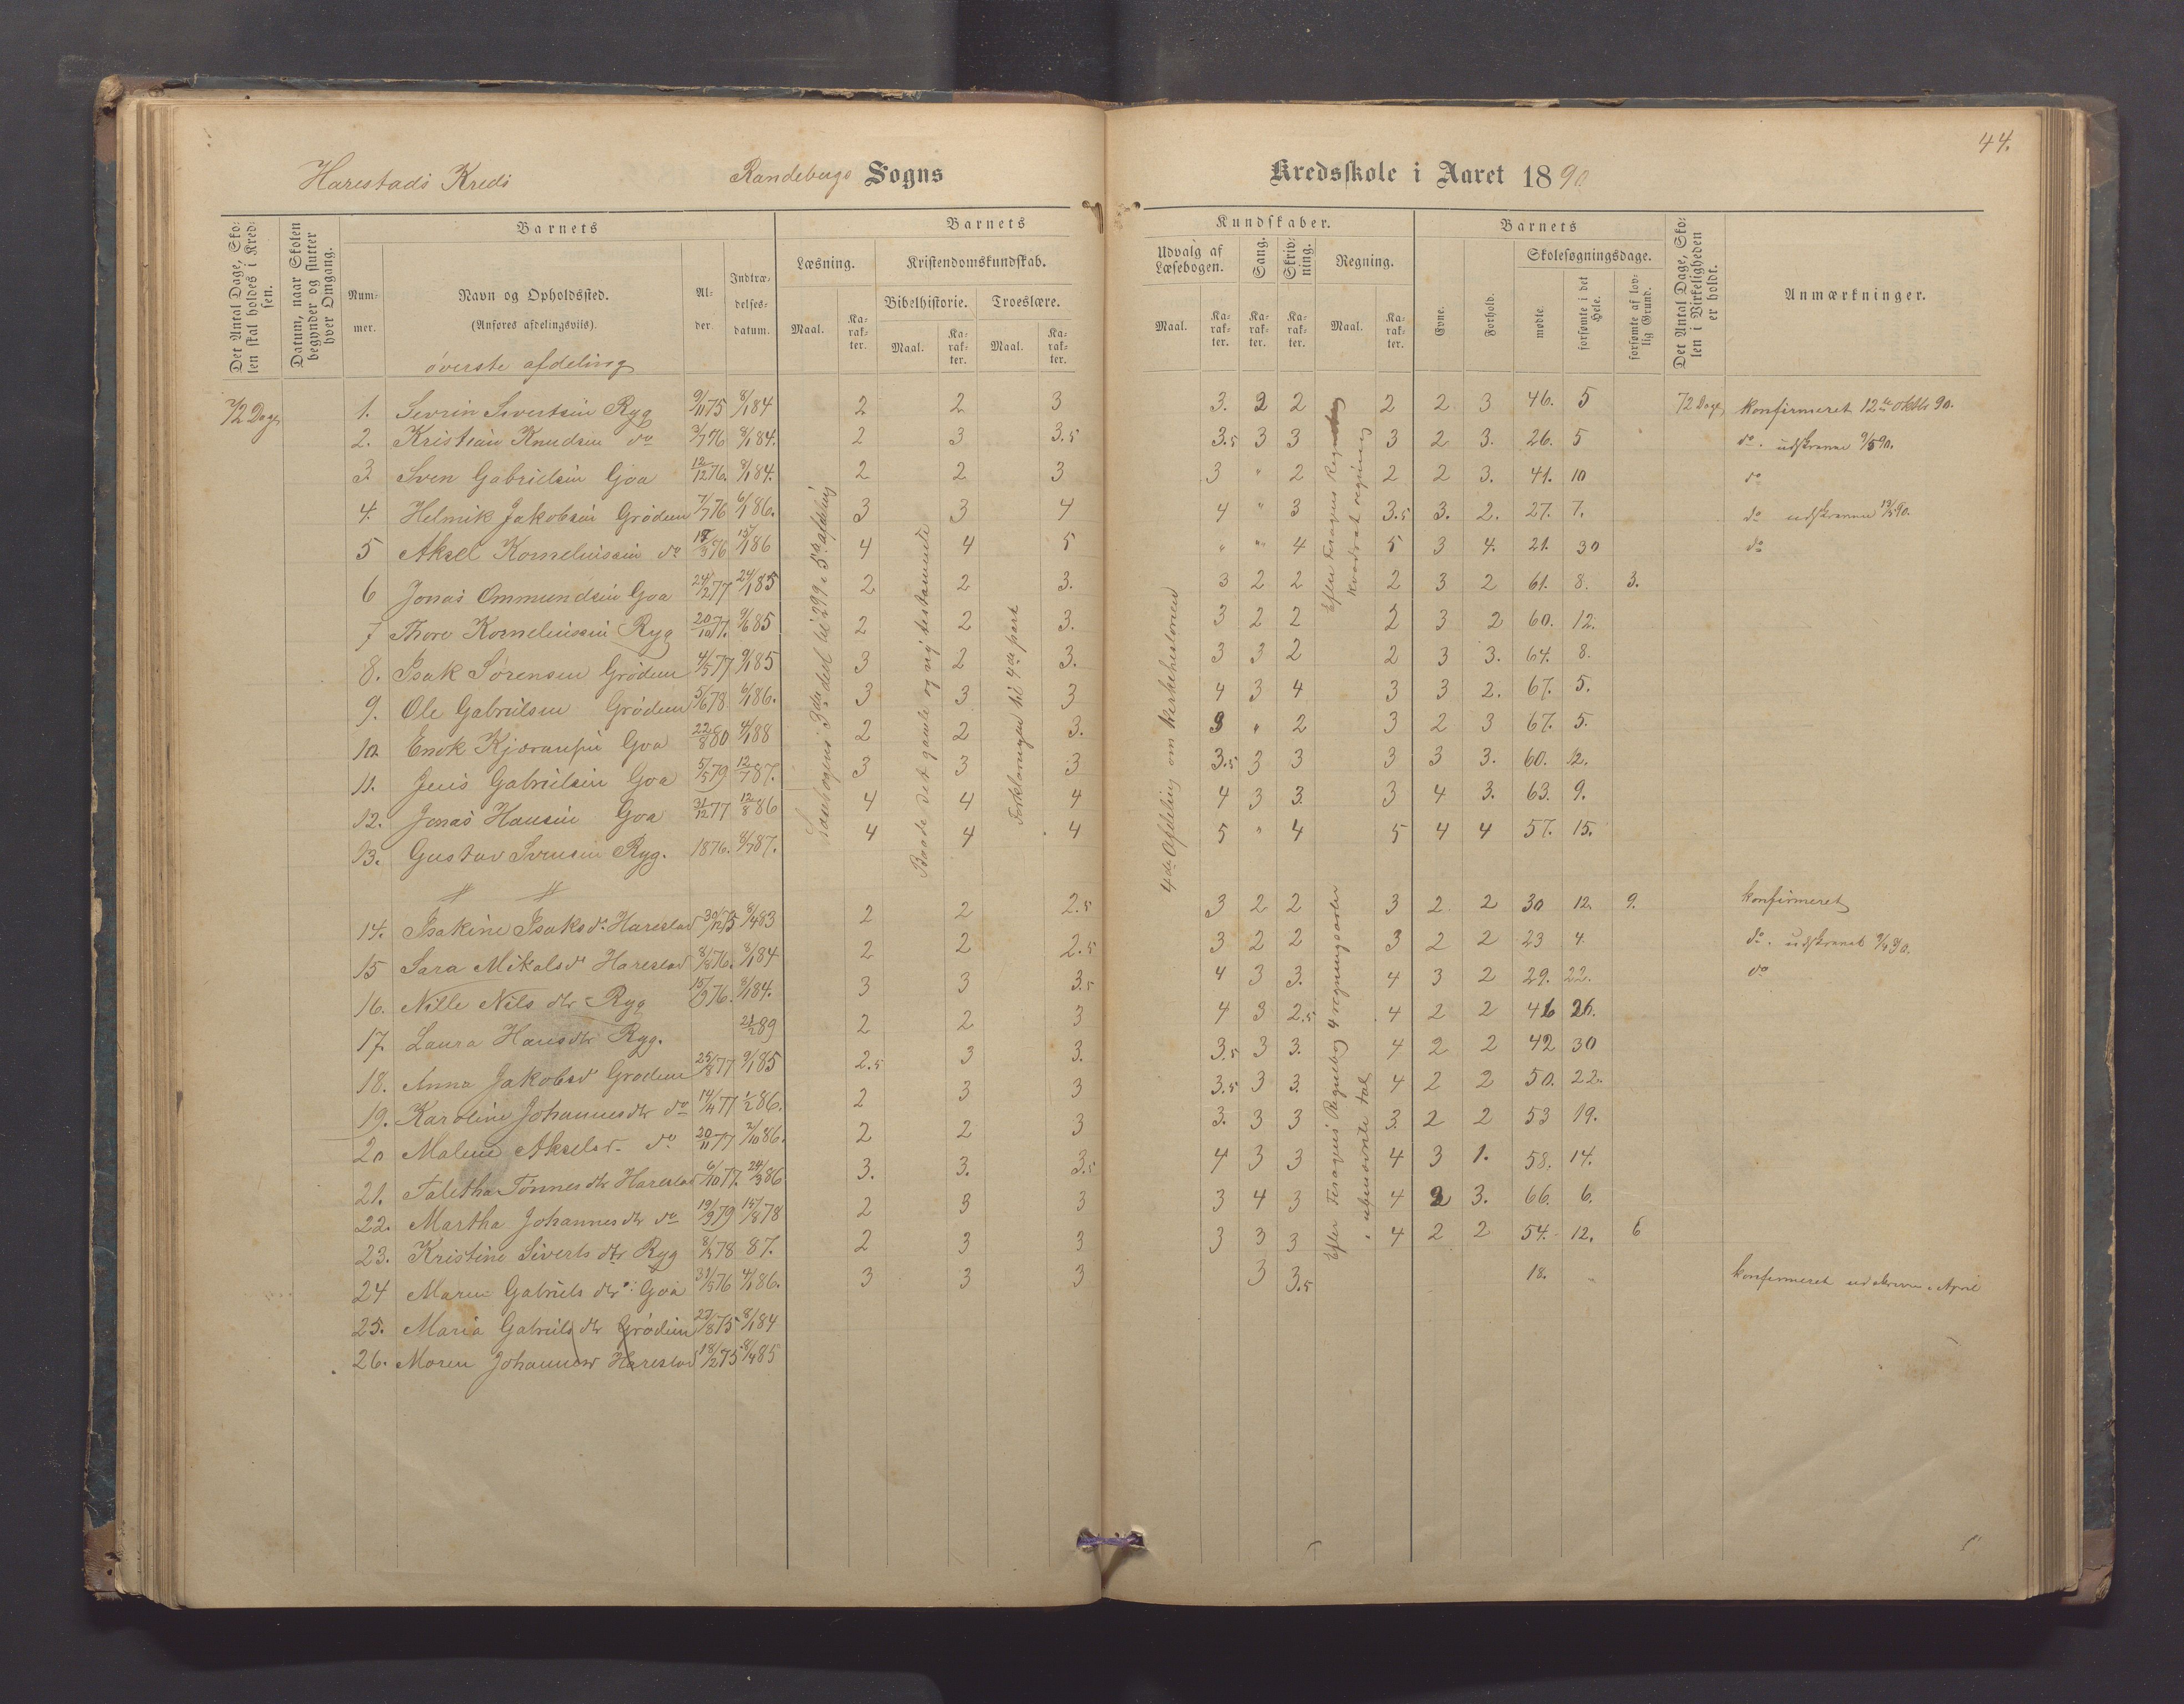 44.
Harestads Kreds Randebergs Sogns Kredsskole i Aaret 1890
Det Antal Dage, Skolen skal holdes i Kredsen.
Datum, naar Skolen begynder og slutter hver Omgang.
Barnets
Nummer.
Navn og Opholdssted.
(Anføres afdelingsvis).
Alder.
Indtrædelsesdatum.
Barnets Kundskaber.
Læsning.
Maal.
Karakter.
Kristendomskundskab.
Bibelhistorie.
Maal.
Karakter.
Troeslære.
Maal.
Karakter.
Udvalg af Læsebogen.
Maal.
Karakter.
Sang.
Karakter.
Skrivning.
Karakter.
Regning.
Maal.
Karakter.
Barnets
Evne.
Forhold.
Skolesøgningsdage.
mødte.
forsømte i det Hele.
forsømte af lovlig Grund.
Det Antal Dage, Skolen i Virkeligheden er holdt.
Anmærkninger.
øverste afdeling
72 Dage 1. Sevrin Sivertsen Ryg 9/11 75 8/1 84 2 2 3 3. 2 2 2 2 3 46. 5 72 Dage konfirmeret 12te oktbr 90.
2. Kristian Knudsen do 3/7 76 8/1 84. 2 3 3.5 3.5 3 3 3 2 3. 26. 5 do. udskreven 9/5 90.
3. Sven Gabrielsen Goa 12/12 76. 8/1 84. 2 2 3 3 " 2 2 2 3. 41. 10 do
4. Helmik Jakobsen Grödem 7/7 76 6/1 86. 3 3 4 4 " 3 3.5 3. 2. 27. 7. do udskreven 13/5 90.
5 Aksel Korneliussen do 18/3 76 15/1 86 4 4 5 " " 4 5 3 4. 21. 30 do
6 Jonas Ommundsen Goa 24/2 77 24/1 85 2 2 3. 3 2 2 2 3 2 61. 8. 3.
7 Thore Korneliussen Ryg 20/10 77. 9/6 85 2 2 3. 3 2 2 2 3 2 60. 12.
8. Isak Sörensen Grödem 4/5 77 9/1 85 3 2 3. 3 3 2 2 3 3. 64. 8.
9. Ole Gabrielsen Grödem 5/6 78 6/1 86. 3 3 3 4 3 4 3 3 2. 67. 5.
10. Enok Kjæransen Goa 22/8 80 4/1 88 2 2 3. 3 " 2 3 2 3 67. 5.
11. Jens Gabrielsen Goa 5/5 79 12/7 87. 3 3 3 3.5 3 3 3 3 3. 60. 12.
12. Jonas Hansen Goa 31/12 77 12/8 86 4 4 4 4 3 3. 3 4 3. 63. 9.
13. Gustav Svensen Ryg. 1876. 8/7 87. 4 4 4 5 " 4 5 4 4 57. 15.
14. Isakine Isaksd. Harestad 30/12 75 8/4 83 2 2 2.5 3 2 2 3 2 2 30 12. 9. konfirmeret
15 Sara Mikalsd Harestad 8/8 76. 8/1 84 2 2 2.5 3 2 2 3 2 2 23 4. do. udskrevet 9/4 90.
16. Nille Nils dtr Ryg 15/9 76. 8/1 84. 3 3 3.5 4 3 3. 4 3 2 29. 22. do
17. Laura Hansdtr Ryg. 21/2 89 2 2 3 4 3 2.5 4 2 2 46 26.
18. Anna Jakobsd Grødem 25/8 77 9/1 85 2.5 3 3. 3.5 3 3. 4 2 2 42 30
19. Karoline Johannesdtr do 14/4 77 1/2 86. 2 3 3 3.5 3 3. 4 2 2 50. 22.
20 Malene Akselsd. do 20/11 77 2/10 86. 2 2 3 3. 3 3 3. 2 2 53 19.
21. Taletha Tönnesdtr Harestad 6/10 77. 24/3 86 3. 3. 3.5 4 3 3 4 3 1. 58. 14.
22. Martha Johannesdtr do 19/9 79 15/8 78 2 3 3 3 4 3 4 2 3. 66. 6.
23. Kristine Siverts dtr Ryg 8/4 78 87. 2 3 3 3 3 3 4 2 2 54. 12. 6
24 Maren Gabriels dtr Goa 31/5 76 4/1 86. 3 3 3 3 3.5 18. konfirmeret udskreven April
25. Maria Gabrielsdtr Grödem 23/8 75 8/1 84
26. Maren Johannesd Harestad 18/2 75 8/4 85
Læsebogens 3die deel til 299 i 5te afdeling
Baade det gamle og ny testamente
Forklaringen til 4de part
4de Afdeling om kirkehistorien
Kvadrat regning